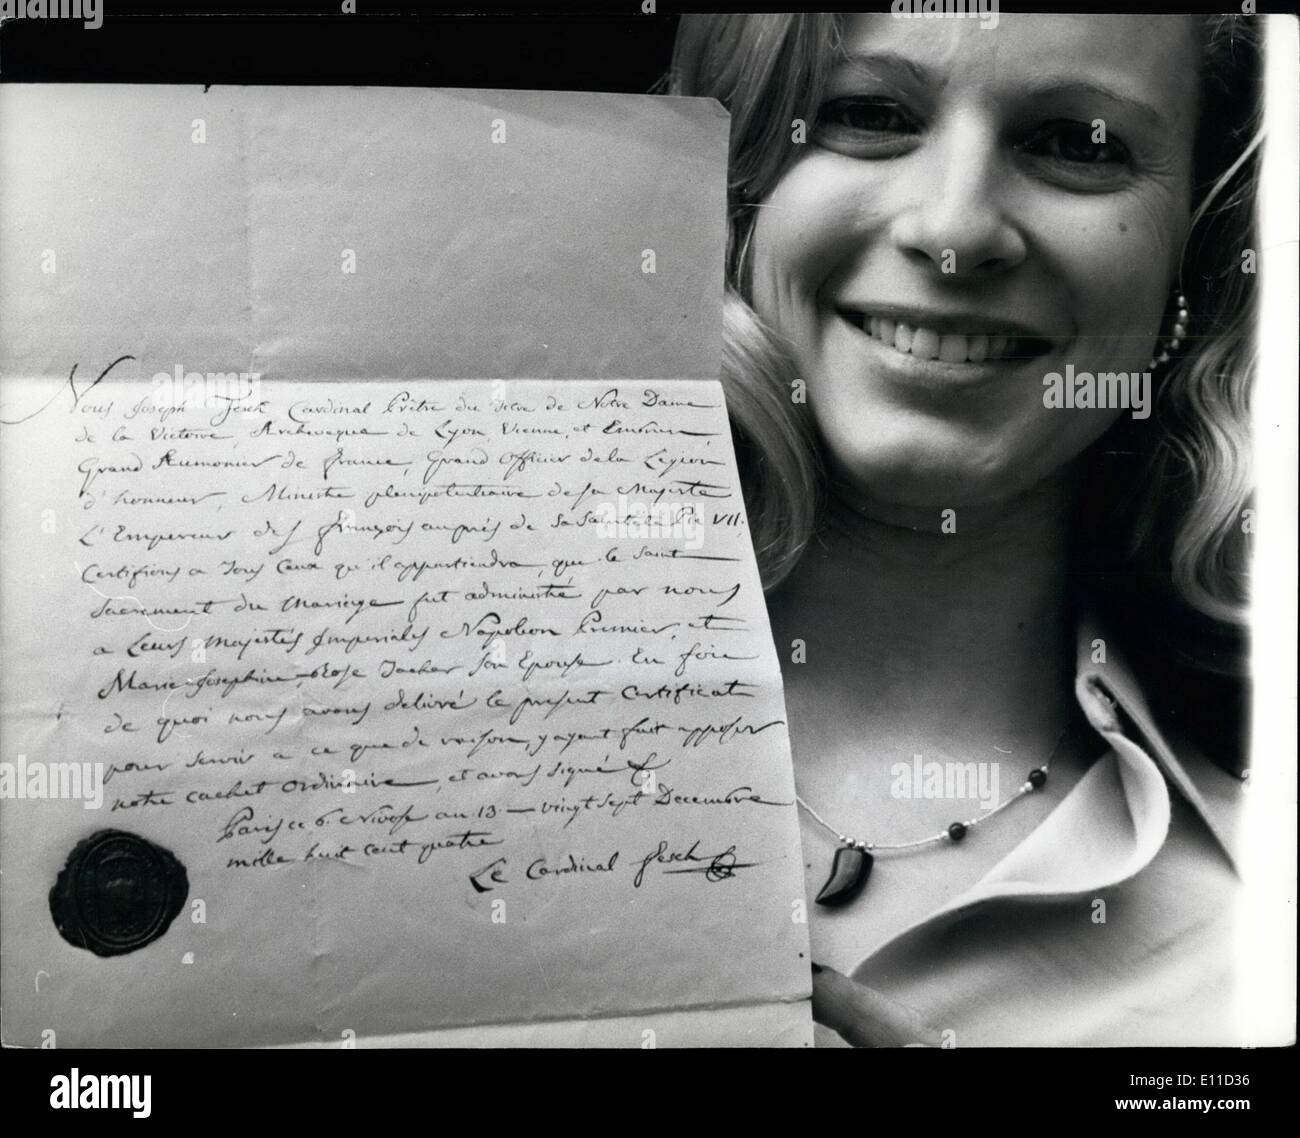 Nous Joseph Fesch Cardinal Prêtre du titre de Notre Dame
de la Victoire, Archeveque de Lyon, Vienne, et Embrun,
Grand Aumonier de france, Grand Officier de la Légion
d'honneur, Ministre plenipotentiaire de sa Majesté
L'Empereur des françois auprés de Sa Sainteté Pie VII.
Certifions a Tous Ceux qu'il appartiendra, que le Saint
Sacrement du Mariage fut administré par nous
a Leurs Majestés Imperiales Napoleon Premier, et
Marie-Josephine-Rose Tacher Son Epouse. En foie
de quoi nous avons delivré le present Certificat
pour servir a ce que de raison, y ayant fait apposer
notre cachet Ordinaire, et avons signé &
Paris ce 6. Nivose an 13 — vingt sept Decembre
mille huit cent quatre
Le Cardinal Fesch
alamy
alamy
alamy
Image ID: E11D36
www.alamy.com